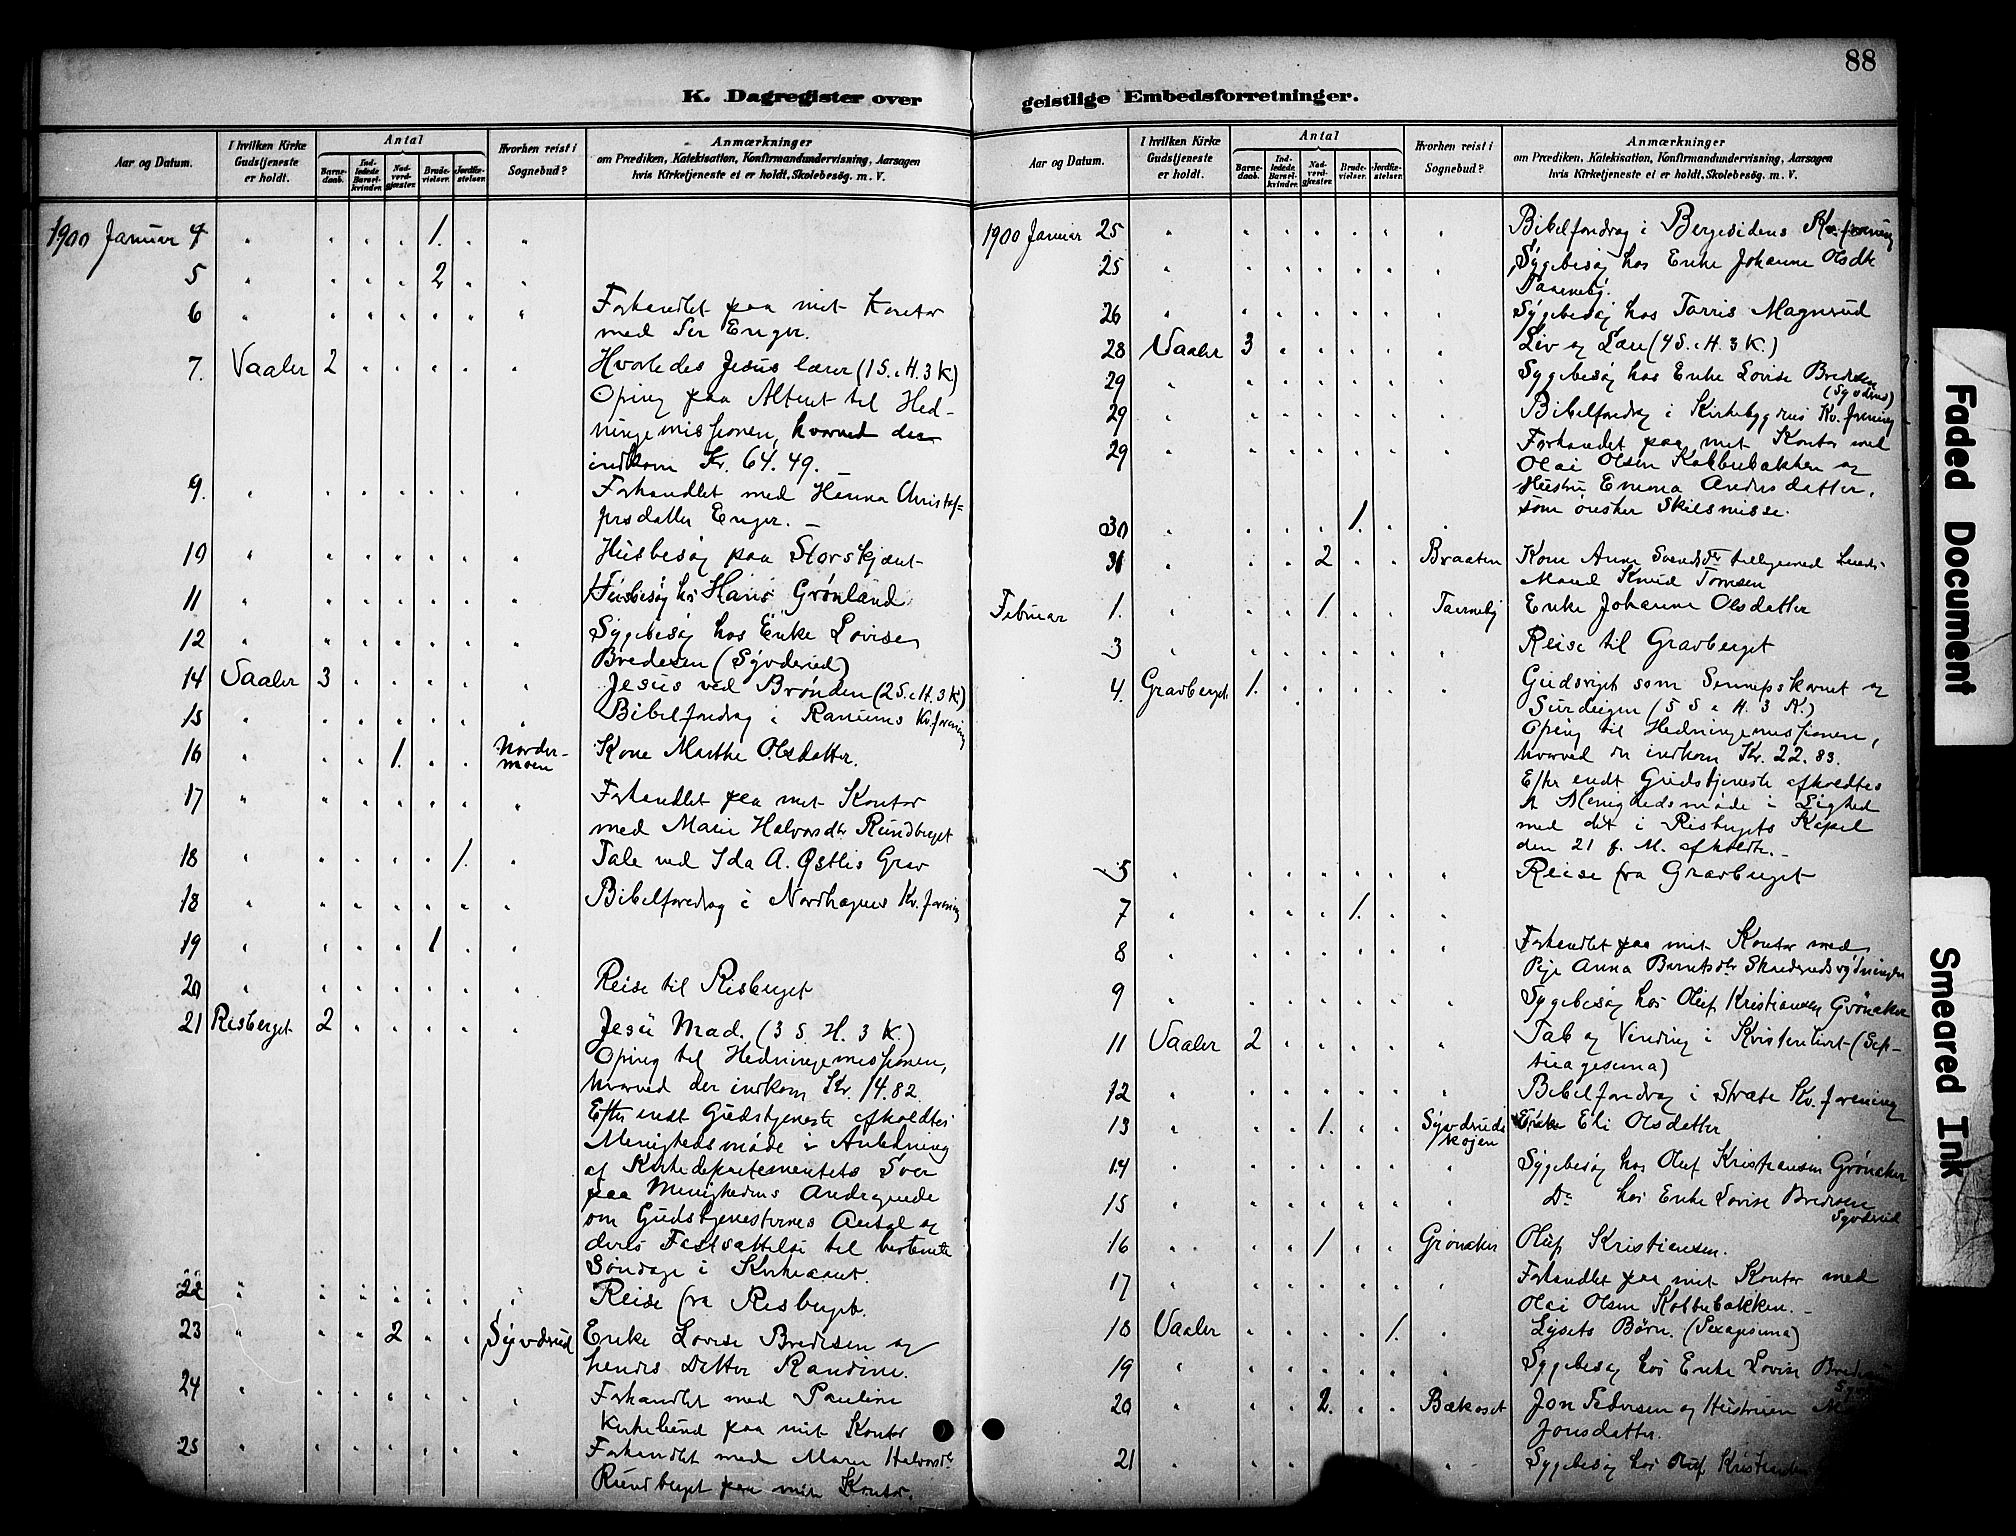 88
K. Dagregister over
geistlige Embedsforretninger.
Aar og Datum.
I hvilken Kirke Gudstjeneste er holdt.
Antal
Barne-daab.
Ind-ledede Barsel-kvinder.
Nad-verd-gjæster.
Brude-vielser.
Jordfæ-stelser.
Hvorhen reist i Sognebud?
Anmærkninger
om Prædiken, Katekisation, Konfirmandundervisning, Aarsagen
hvis Kirketjeneste ei er holdt, Skolebesøg. m. V.
1900 Januar 4 " " " " 1. " "
5 " " " " 2 " "
6 " " " " " " " Forhandlet paa mit Kontor
med Enger.
7. Vaaler 2 " " " " " Hvorledes Jesus lærer (1 S. e. H. 3 K)
Ofring paa Alteret til Hed-
ningemissionen, hvorved der
indkom Kr. 64.49. —
9. " " " " " " " Forhandlet med Hanna Christof-
fersdatter Enger. —
10 " " " " " " " Husbesøg paa Storskjæret
11 " " " " " " " Husbesøg hos Hans Grønland
12 " " " " " " " Sygebesøg hos Enke Lovise
Bredesen (Syvderud)
14 Vaaler 3 " " " " " Jesus ved Brønden (2 S. e. H. 3 K)
15 " " " " " " " Bibelforedrag i Ranums Kv. forening
16 " " " 1. " " Norder-
moen Kone Marthe Olsdatter.
17 " " " " " " " Forhandlet paa mit Kontor
med Marie Halvorsdtr Rundberget
18 " " " " " 1. " Tale ved Ida A. Østlis Grav
18 " " " " " " " Bibelforedrag i Nordhagens Kv. forening
19 " " " " 1 " "
20 " " " " " " " Reise til Risberget
21 Risberget 2 " " " " " Jesu Mad. (3 S. H. 3 K.)
Ofring til Hedningemissionen,
hvorved der indkom Kr. 14.82.
Efter endt Gudstjeneste afholdtes
Menighedsmøde i Anledning
af Kirkedepartementets Svar
paa Menighedens Andragende
om Gudstjenesternes Antal og
deres Fastsættelse til bestemte
Søndage i Kirkeaaret.
22 " " " " " " " Reise fra Risberget.
23 " " " 2 " " Syvdrud Enke Lovise Bredesen og
hendes Datter Randine.
24 " " " " " " " Forhandlet med Pauline
Kirkelund paa mit Kontor
25 " " " " " " " Forhandlet med Maren Halvorsdtr
Rundberget paa mit Kontor.
Aar og Datum.
I hvilken Kirke Gudstjeneste er holdt.
Antal
Barne-daab.
Ind-ledede Barsel-kvinder.
Nad-verd-gjæster.
Brude-vielser.
Jordfæ-stelser.
Hvorhen reist i Sognebud?
Anmærkninger
om Prædiken, Katekisation, Konfirmandundervisning, Aarsagen
hvis Kirketjeneste ei er holdt, Skolebesøg. m. V.
1900 Januar 25 " " " " " " " Bibelforedrag i Bergesidens Kv. forening
25 " " " " " " " Sygebesøg hos Enke Johanne Olsdtr
Taarneby.
26 " " " " " " " Sygebesøg hos Tarris Magnrud
28 Vaaler 3 " " " " " Liv og Lære (4 S. e. H. 3 K.)
29 " " " " " " " Sygebesøg hos Enke Lovise Bredesen
(Syvdrud)
29 " " " " " " " Bibelforedrag i Kirkebygdens Kv. forening
29 " " " " " " " Forhandlet paa mit Kontor med
Olai Olsen Kobbebakken og
Hustru Emma Andersdatter,
som ønsker Skilsmisse.
30 " " " " 1. " "
31 " " " 2 " " Braaten Kone Anne Svendsdtr tilligemed hendes
Mand Knud Tomsen
Februar 1. " " " 1. " " Taarneby Enke Johanne Olsdatter
3 " " " " " " " Reise til Gravberget
4. Gravberget 1. " " " " " Gudsriget som Sennepskornet og
Surdeigen (5 S e H. 3 K.)
Ofring til Hedningemissionen,
hvorved der indkom Kr. 22.83.
Efter endt Gudstjeneste afholdtes
et Menighedsmøde i Lighed
med det i Risbergets Kapel
den 21 f. M. afholdte. —
5 " " " " " " " Reise fra Gravberget
7 " " " " 1. " "
8 " " " " " " " Forhandlet paa mit Kontor med
Pige Anna Berntsdtr Skuderudsrydningen
9 " " " " " " " Sygebesøg hos Oluf Kristiansen Grønaker
11 Vaaler 2 " " " " " Tab og Vinding i Kristenlivet (Sep-
tuagesima)
12 " " " " " " " Bibelforedrag i Strate Kv. forening
13 " " " 1. " " Syvdruds
skojen Enke Eli Olsdatter
14 " " " " " " " Sygebesøg hos Oluf Kristiansen Grønaker
15 " " " " " " " Do hos Enke Lovise Bredesen
Syvderud
16 " " " 1 " " Grønaker Oluf Kristiansen.
17 " " " " " " " Forhandlet paa mit Kontor med
Olai Olsen Kobbebakken. —
18 Vaaler " " " " 1. " Lysets Børn. (Sexagesima)
19 " " " " " " " Sygebesøg hos Enke Lovise
20 " " " 2. " " Bækaset Jon Pedersen og Hustruen
Jonsdatter.
21 " " " " " " " Sygebesøg hos Oluf Kristiansen
Faded Document
Smeared Ink